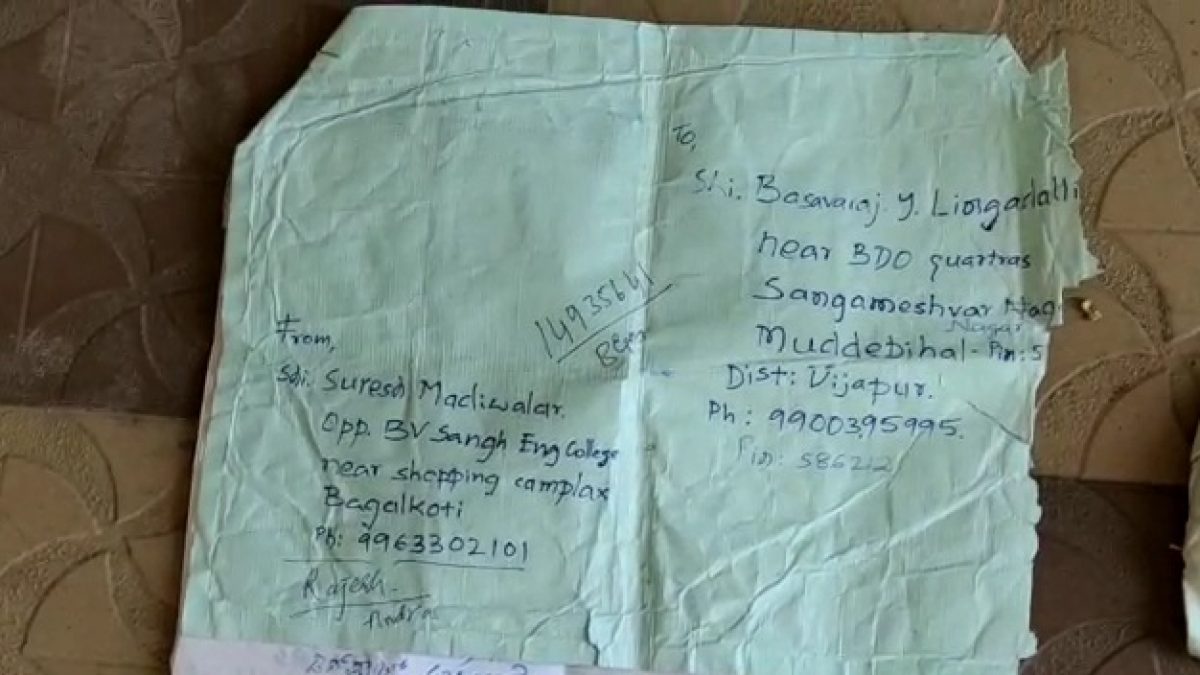 To,
Shi. Basavaraj. Y. Lingadalli
near BDO quartras
Sangameshvar Nag
Nagar
Muddebihal - Pin: 5
Dist: Vijapur.
Ph: 9900395995.
Pin: 586212
14935641
From,
Shi. Suresh Madiwalar.
Opp. BV Sangh Eng College
near shopping camplax
Bagalkoti
Ph: 9963302101
Rajesh